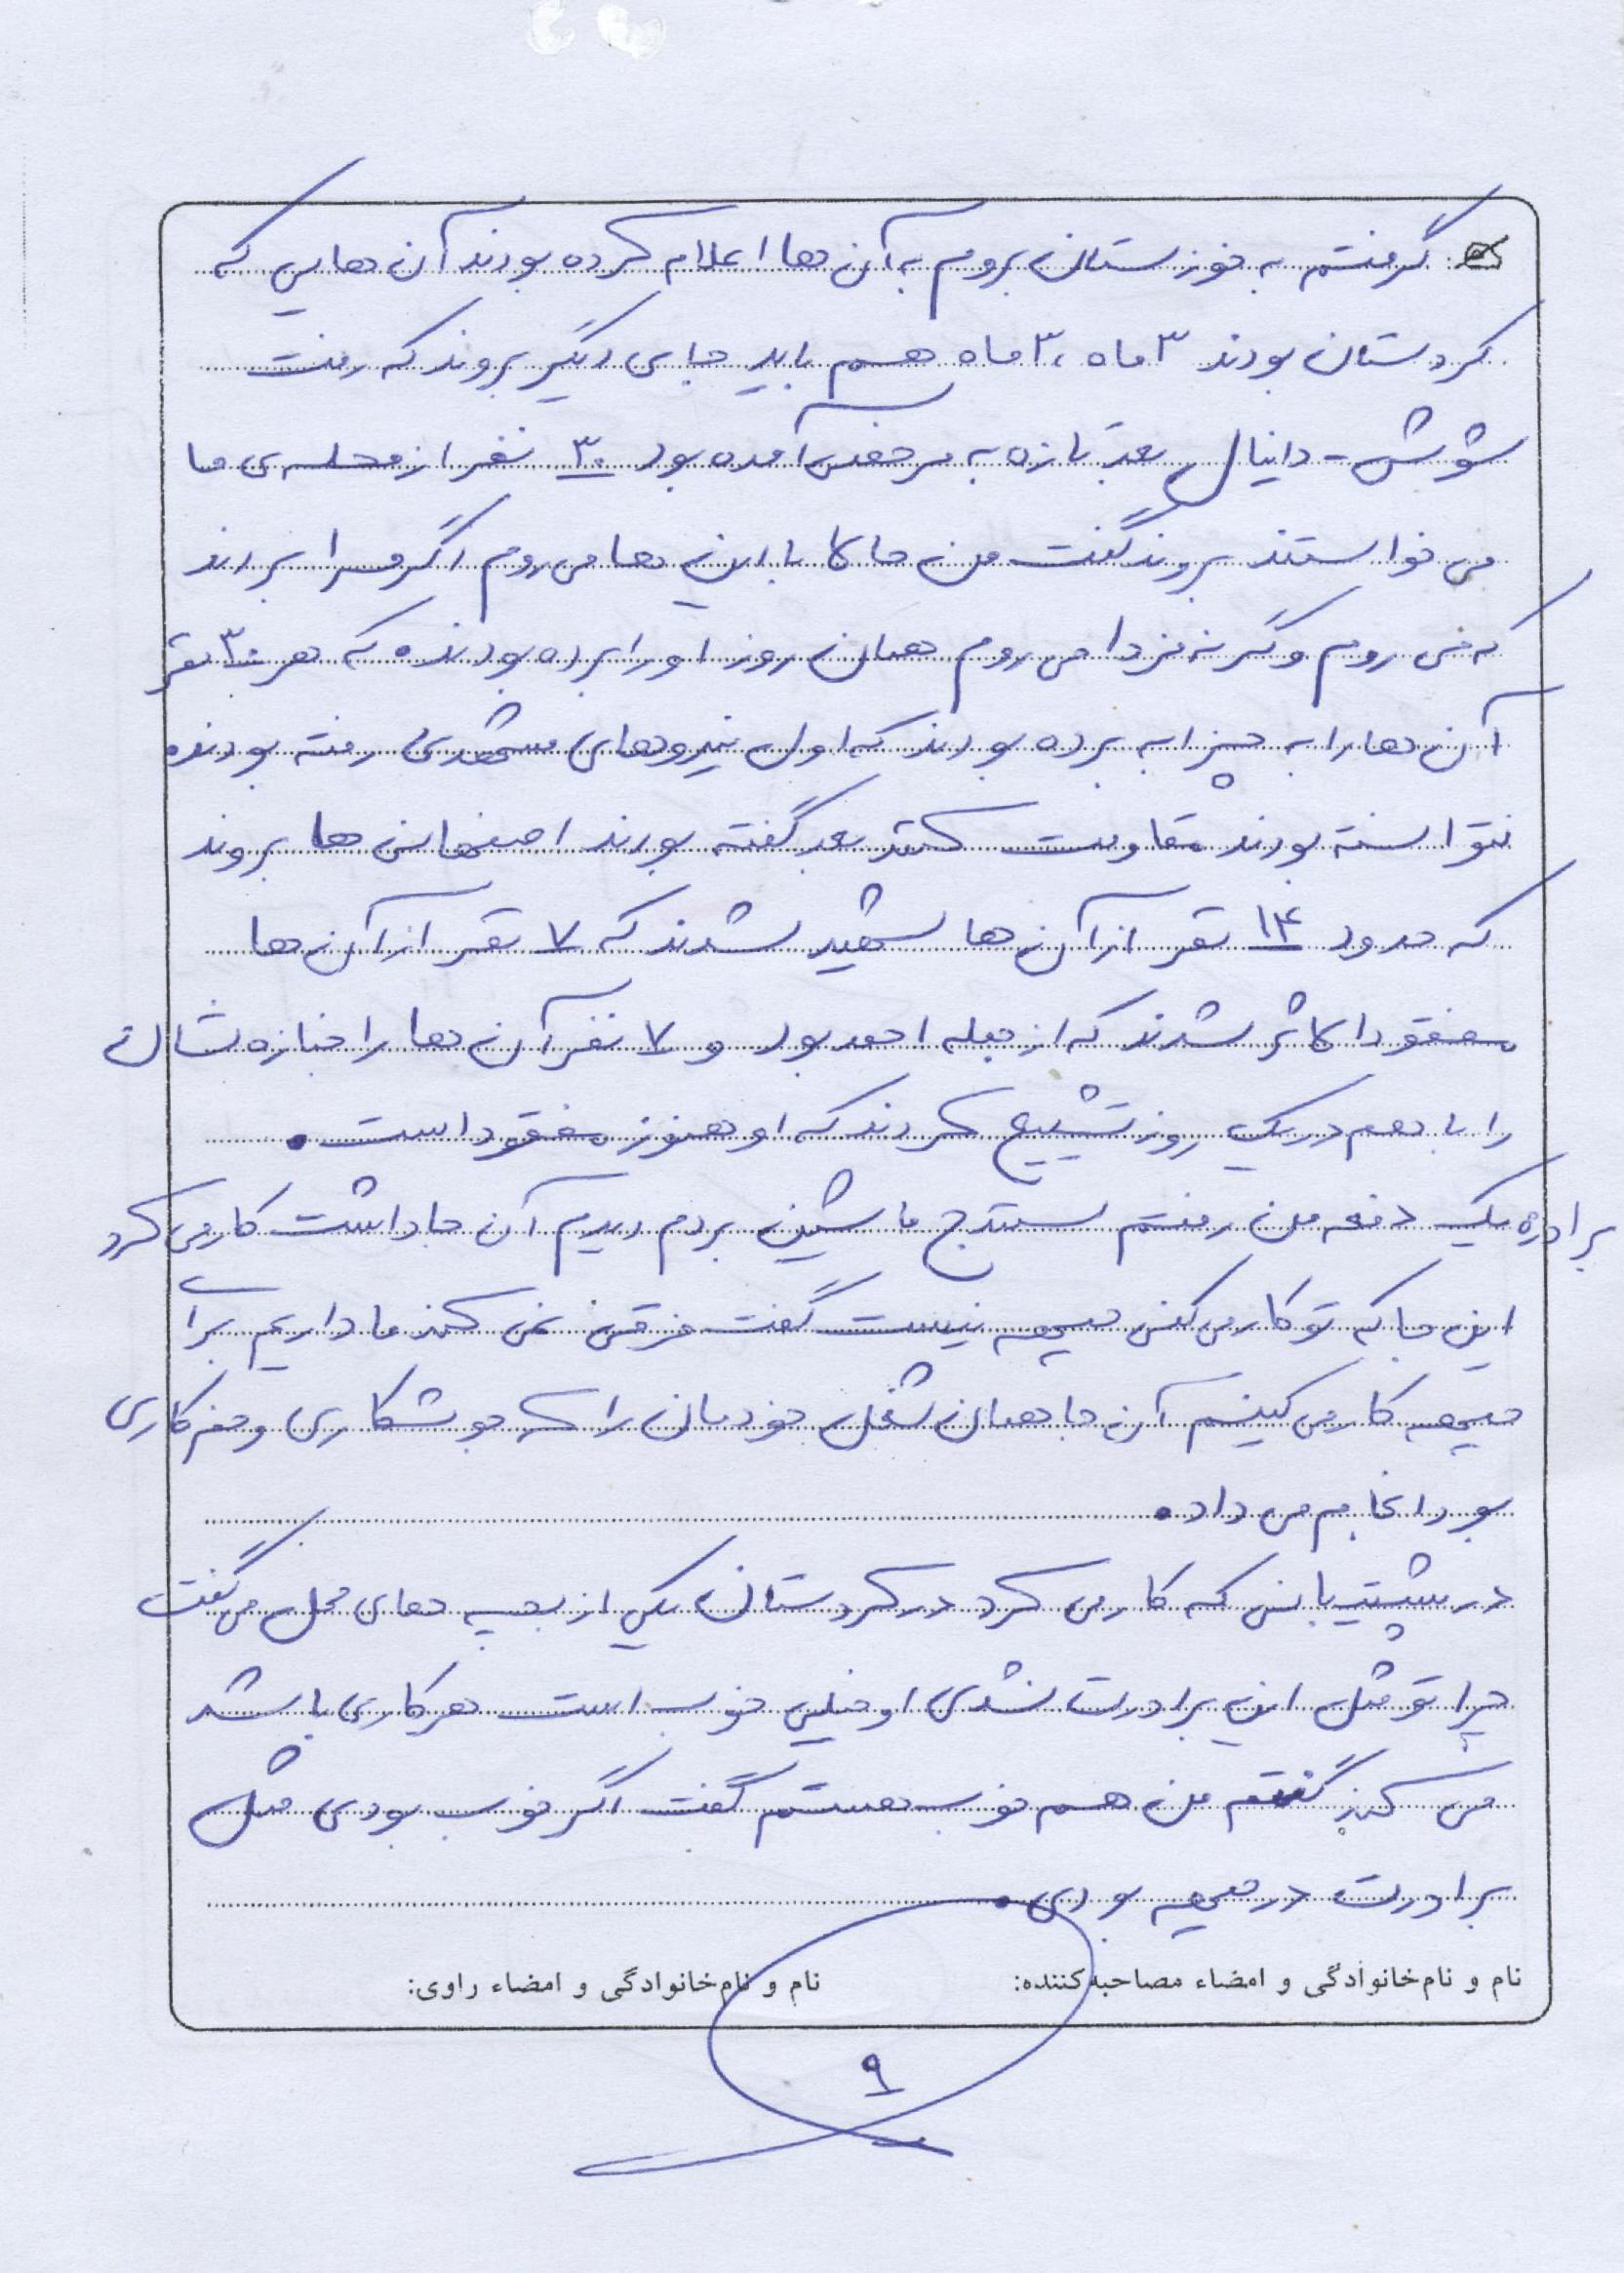 گرفتم به خوزستان بروم به آن ها اعلام کرده بودند آن هایی که
کردستان بودند ۳ ماه ، ۳ ماه هم باید جای دیگر بروند که رفت
شوش - دانیال بعد تازه به مرخصی آمده بود ۳۰ نفر از محله ی ما
می خواستند بروند گفت من حالا با این ها می روم اگر مرا بردند
که می روم وگرنه فردا می روم همان روز او را برده بودند که هر ۳۰ نفر
آن ها را به چزابه برده بودند که اول نیروهای مشهدی رفته بودند
نتوانسته بودند مقاومت کنند بعد گفته بودند اصفهانی ها بروند
که حدود ۱۴ نفر از آن ها شهید شدند که ۷ نفر از آن ها
مفقودالاثر شدند که از جمله احمد بود و ۷ نفر آن ها را جنازه شان
را با هم در یک روز تشییع کردند که او هنوز مفقود است.
برادرم یک دفعه من رفتم سنندج ماشین بردم دیدم آن جا داشت کار می کرد
این جا که تو کار می کنی جبهه نیست گفت فرقی نمی کند ما داریم برا
جبهه کار می کنیم آن جا همان شغل خودمان را که جوشکاری و
بود انجام می داد.
در پشتیبانی که کار می کرد در کردستان یکی از بچه های محل می گفت
چرا تو مثل این برادرت نشدی او خیلی خوب است هر کاری باشد
می کند گفتم من هم خوب هستم گفت اگر خوب بودی مثل
برادرت در جبهه بودی.
نام و نام‌خانوادگی و امضاء مصاحبه‌کننده:
نام و نام‌خانوادگی و امضاء راوی:
۹